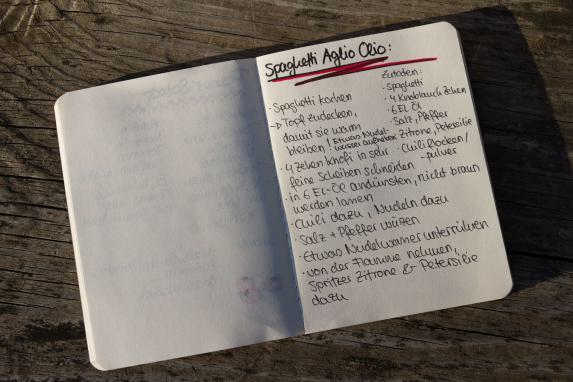 Spaghetti Aglio Olio:
Zutaten:
· Spaghetti
· 4 Knoblauch Zehen
· 6 EL Öl
· Salz, Pfeffer
· Zitrone, Petersilie
· Chiliflocken/
-pulver
· Spaghetti kochen
→ Topf zudecken,
damit sie warm
bleiben / Etwas Nudel-
wasser aufheben
· 4 Zehen Knofi in sehr
feine Scheiben schneiden
· in 6 EL-Öl andünsten, nicht braun
werden lassen
· Chili dazu, Nudeln dazu
· Salz + Pfeffer würzen
· Etwas Nudelwasser unterrühren
· von der Flamme nehmen,
Spritzer Zitrone & Petersilie
dazu